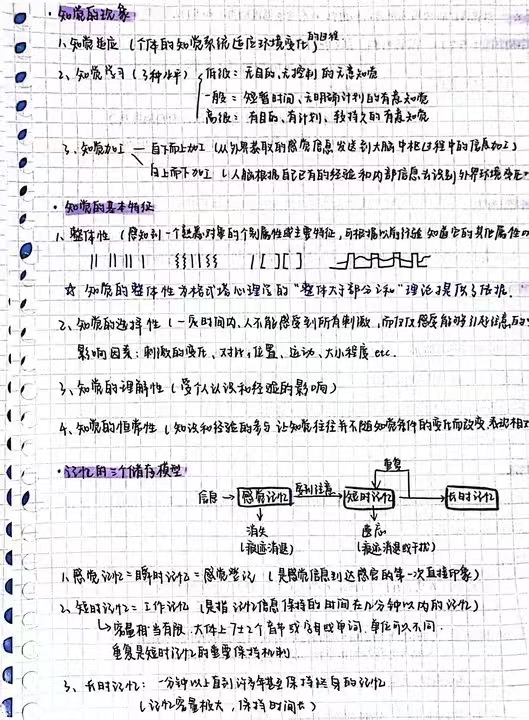 ·知觉的现象
1、知觉适应（个体的知觉系统适应环境变化的过程
2、知觉学习（3种水平） 低级：无目的、无控制的无意知觉
一般：短暂时间、无明确计划的有意知觉
高级：有目的、有计划、较持久的有意知觉
3、知觉加工 — 自下而上加工（从外界获取的感觉信息发送到大脑中枢过程中的信息加工）
自上而下加工（人脑根据自己已有的经验和内部信息去识别外界环境
·知觉的基本特征
1、整体性（感知到一个熟悉对象的个别属性或主要特征，可根据以前经验知道它的其他属性
☆ 知觉的整体性为格式塔心理学的“整体大于部分之和”理论提供了依据.
2、知觉的选择性（一段时间内，人不能感受到所有刺激，而仅仅感受能够引起注意的
影响因素：刺激的变化、对比，位置、运动、大小程度 etc.
3、知觉的理解性（受个人认识和经验的影响）
4、知觉的恒常性（知识和经验的参与 让知觉往往并不随知觉条件的变化而改变
·记忆的三个储存模型
复习
信息 → 感觉记忆 受到注意 短时记忆 → 长时记忆
消失 遗忘
（痕迹消退） （痕迹消退或干扰）
1、感觉记忆=瞬时记忆=感觉登记（是感觉信息到达感官的第一次直接印象）
2、短时记忆=工作记忆（是指记忆信息保持的时间在几分钟以内的记忆）
↳容量相当有限，大体上7±2个音节或字母或单词，单位可以不同.
重复是短时记忆的重要保持机制
3、长时记忆：一分钟以上直到许多年甚至保持终身的记忆
（记忆容量极大，保持时间长）